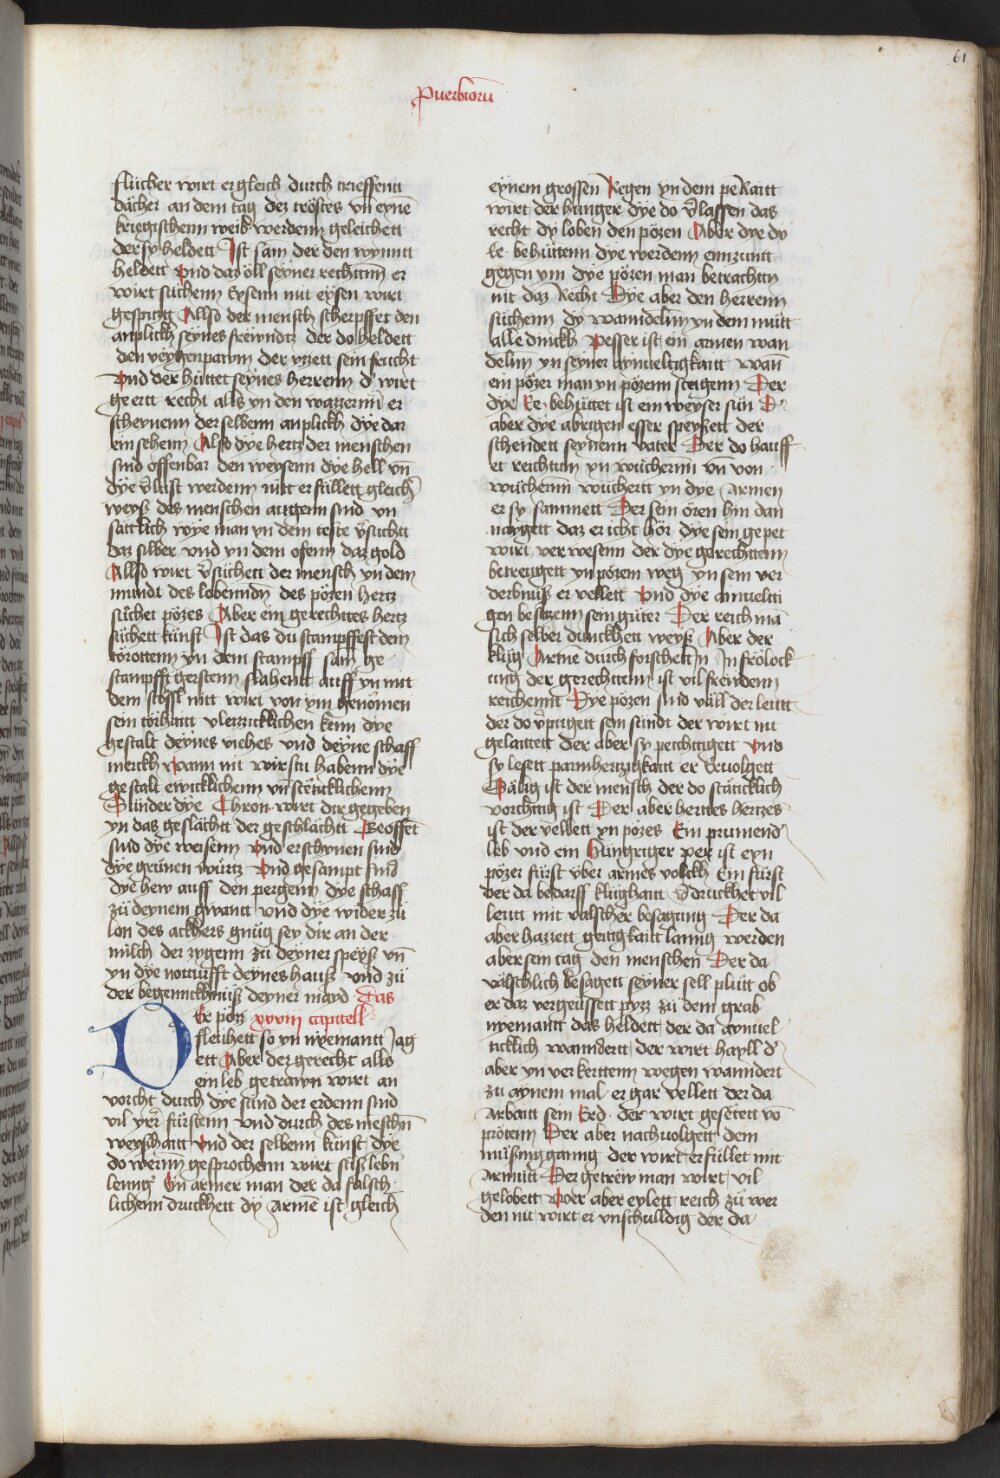 61
Puerbiorū
flücher wirt er gleich durch trieffentt
dächer an dem tag dez tröstes vn̄ eynē
kriegischenn weib werdenn geleichett
der sy heldett Ist sam der den wynntt
heldett Vnd daz öll seyner rechtnn er
wirt süchenn Eysenn mit eysen wirt
gespitzt Allso der mensch scherpffet den
anplickh seynes frewndtz der do heldett
den veyhenpawm der yzzett sein frücht
Vnd der hüttet seynes herrenn d' wirt
ge ertt recht alls yn den wazzernn er
scheynenn der selbenn anplickh dye dar
ein sehenn Also dye hertz der menschen
sind offenbar den weysenn dye hell vn̄
dye v̄lust werdenn nitt er füllett gleich
weyß des menschen augenn sind vn
sättlich wye man yn dem teste v̄süchtt
daz silber vnd yn dem ofenn daz gold
Allso wirt v̄süchett der mensch yn dem
mundt des lobenndn des pözen hertz
süchet pözes Aber ein gerechttes hertz
süchett künst Ist das du stampffest den
törottenn yn dem stampff sam ge
stampfft gerstenn slahentt auff yn mit
dem stössl nitt wirt von ym genomen
sein törhaitt vleizzicklichen kenn dye
gestalt deynes viches vnd deyne schaff
merckh Wann nit wirstu habenn dye
gestalt ewicklichenn vn̄ stēticklichenn
Sünder dye Chron wirt dir gegeben
yn das geslächtt der geschlächtt Geoffet
sind dye weisenn Vnd erschynen sind
dye grünen würtz Vnd gesampt sind
dye hew auff den pergenn dye schaff
zü deynem gwantt vnd dye wider zü
lon des ackhers gnüg sey dir an der
milch der zygenn zü deyner speyß vn̄
yn dye notturfft deynes hauß vnd zü
der begennckhnüß deyner mayd Das
Er pöß xxviij capitell
fleühett so yn nyemantt Jag
ett Aber der gerecht allß
ein leb getrawn wirt an
vorcht durch dye sünd der erdenn sind
vil yrer fürstenn vnd durch des meschn̄
weyßhaitt Vnd der selbenn künst dye
do werdn gesprochenn wirt süß lebn̄
lenng Ein armer man der da falsch
lichenn druckhett dy Armē ist gleich
eynem grossen Regen yn dem pe Raitt
wirt der hunger dye do v̄lassen das
recht dy loben den pözen Aber dye dy
Ee behüttenn dye werdenn enntzüntt
gegen ym dye pözen man betrachttn
nit daz Recht Dye aber den herrenn
süchenn dy wanndelnn yn dem mütt
alle dinckh Pesser ist ein armen wan
delnn yn seyner aynueltigkaitt wan̄
ein pözer man yn pözenn steigenn Der
dye Ee behüttet ist ein weyser sün D'
aber dye abrigen esser speyzett der
schendett seynenn vater Der do hauff
et reichtum yn wüchernn vn̄ von
wüchernn wüchertt yn dye Armen
er sy sammett Der sein ören hin dan
naygett daz er icht hör dye sein gepet
wirt verwesenn der dye gerechttenn
betreügett yn pözem weg yn sein ver
derbnüß er vellett Vnd dye ainuelti
gen besitzenn sein güter Der reich mā
sich selber dünckhett weyß Aber der
klüg Arme durch forschett In Jn frölock
ung der gerechttenn ist vil frewdenn
reichennt Dye pözen sind väll der leütt
der do v̄pirgett sein sündt der wirt nit
gelaittett der aber sy peichttigett Vnd
sy lesett parmhertzigkaitt er ervolgett
Sälig ist der mensch der do stäticklich
vorchttig ist Der aber herttes hertzes
ist der vellett yn pözes Ein prümend
leb vnd ein hungriger per ist eyn
pözer fürst über armes volckh Ein fürst
der da bedarff klüghaitt v̄druckhet vil
leütt mit valscher besagung Der da
aber hazzett geitigkaitt lanng werden
aber sein tag den menschen Der da
välschlich besagett seyner sell plütt ob
er daz vergeüssett pyzz zü dem grab
nyemantt das heldett der da aynuel
ticklich wanndertt der wirt hayll d'
aber yn verkerttenn wegen wanndert
zu aynem mal er gar vellett der da
Arbaitt sein Erd der wirt gesetett vō
prötenn Der aber nachuolgett dem
müßinggang der wirt erfüllet mit
Armütt Der getrew man wirt vil
gelobett Wer aber eylett reich zü wer
den nit wirt er vnschulldig der da